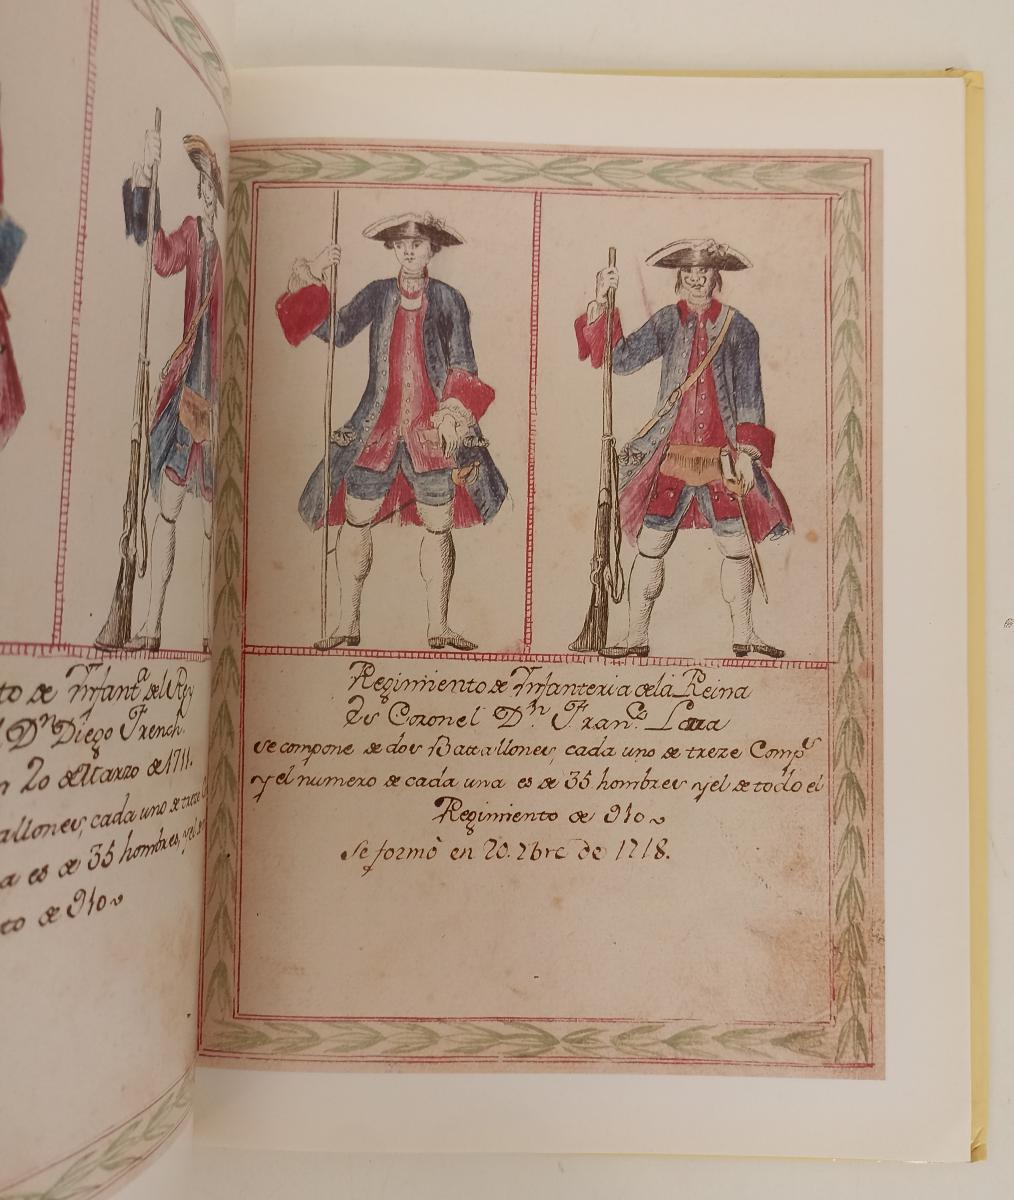 to de Ynfant.ª del Rey
l D.n Diego French.
n 20 de Marzo de 1711.
allones, cada uno de treze
a es de 35 hombres, y el
to de 910
Regimiento de Ynfanteria de la Reina
Es Coronel D.n Fran.co
se compone de dos Batallones, cada uno de treze Comp.s
y el numero de cada una es de 35 hombres y el de todo el
Regimiento de 910
se formò en 20. de 1718.